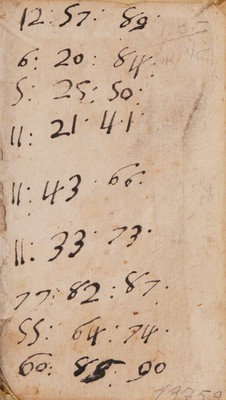 12: 57: 89:
6: 20: 84:
5: 25: 50:
11: 21: 41:
11: 43: 66:
11: 33: 73:
77: 82: 87:
55: 64: 74:
60: 85: 90